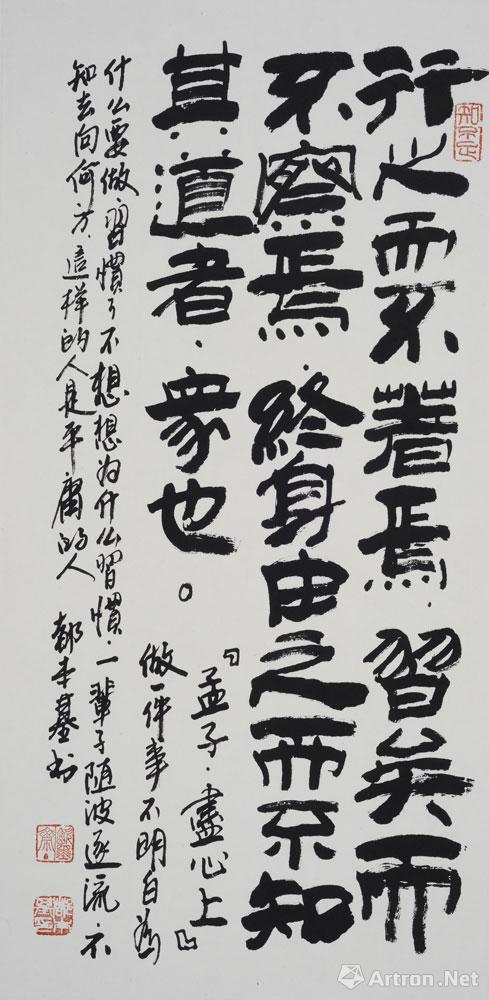 行之而不著焉,習矣而
不察焉,終身由之而不知
其道者,衆也。
『孟子·盡心上』
做一件事不明白为
什么要做,習慣了不想想为什么習慣,一輩子随波逐流,不
知去向何方,這样的人是平庸的人
知不足
Artron.Net